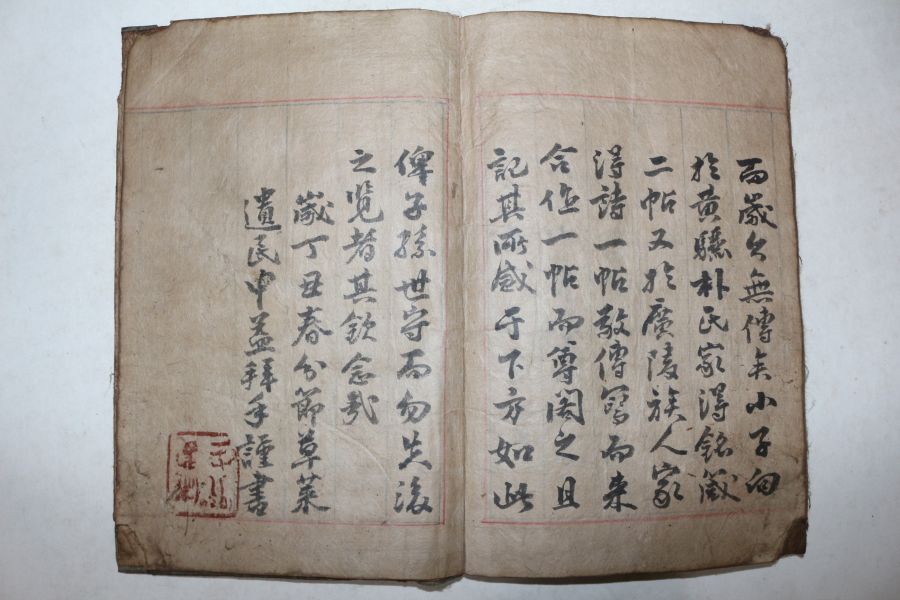 而歲久無傳矣小子向
於黃驪朴氏家得銘箴
二帖又於廣陵族人家
得詩一帖敬傳寫而來
合作一帖而尊閣之且
記其所感于下方如此
俾子孫世守而勿失後
之覽者其欽念哉
歲丁丑春分節草萊
遺民中益拜手謹書